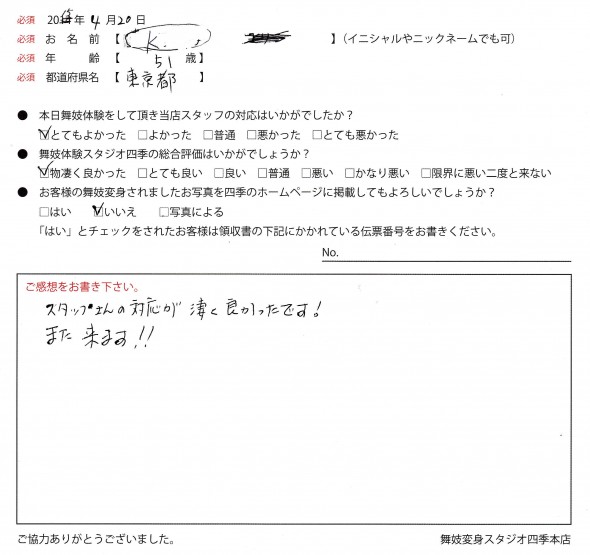 必須 20 年 4 月 20 日
必須 お 名 前 【 K. 】(イニシャルやニックネームでも可)
必須 年 齢 【 51 歳】
必須 都道府県名 【 東京都 】
● 本日舞妓体験をして頂き当店スタッフの対応はいかがでしたか？
☑とてもよかった □よかった □普通 □悪かった □とても悪かった
● 舞妓体験スタジオ四季の総合評価はいかがでしょうか？
☑物凄く良かった □とても良い □良い □普通 □悪い □かなり悪い □限界に悪い二度と来ない
● お客様の舞妓変身されましたお写真を四季のホームページに掲載してもよろしいでしょうか？
□はい ☑いいえ □写真による
「はい」とチェックをされたお客様は領収書の下記にかかれている伝票番号をお書きください。
No.
ご感想をお書き下さい。
スタッフさんの対応が凄く良かったです！
また来ます!!
ご協力ありがとうございました。 舞妓変身スタジオ四季本店